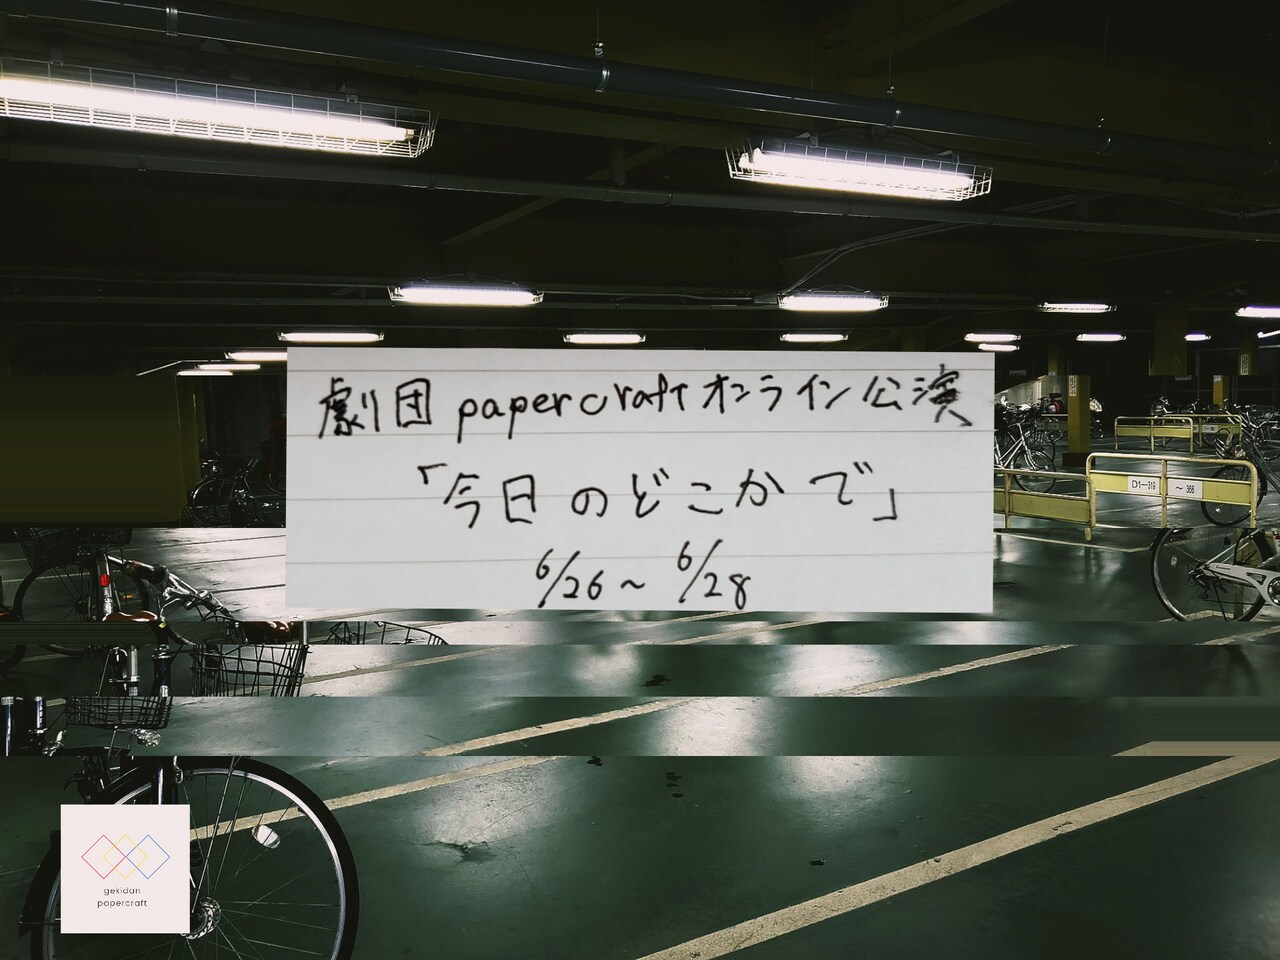 劇団 papercraft オンライン公演
「今日のどこかで」
6/26 ~ 6/28
D1-319 ~ 366
gekidan
papercraft